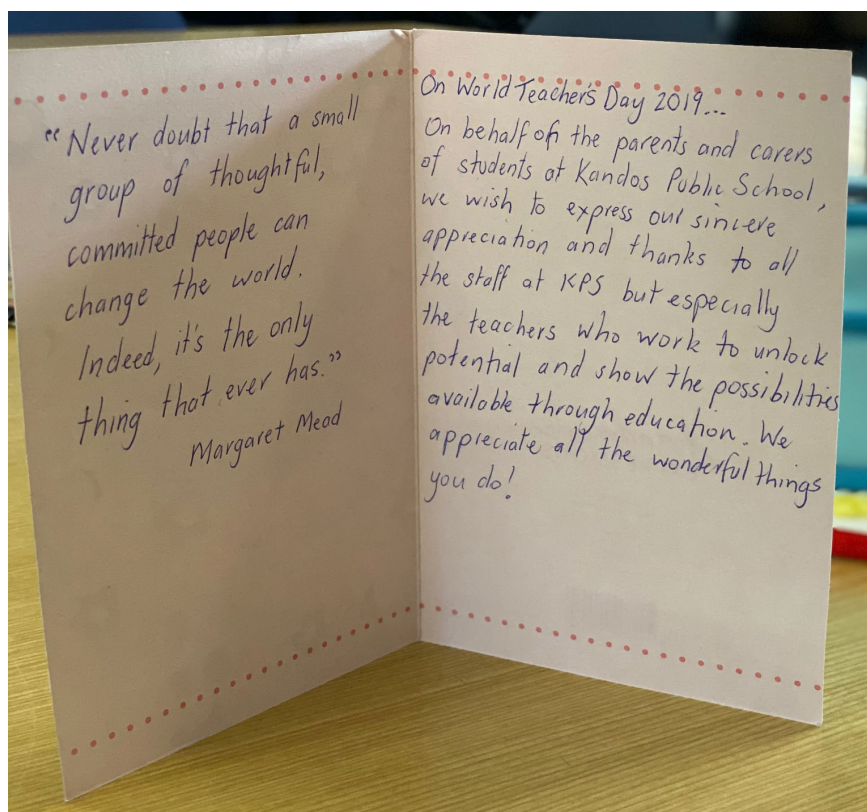 "Never doubt that a small
group of thoughtful,
committed people can
change the world.
Indeed, it's the only
thing that ever has."
Margaret Mead
On World Teacher's Day 2019...
On behalf of the parents and carers
of students at Kandos Public School,
we wish to express our sincere
appreciation and thanks to all
the staff at KPS but especially
the teachers who work to unlock
potential and show the possibilities
available through education. We
appreciate all the wonderful things
you do!